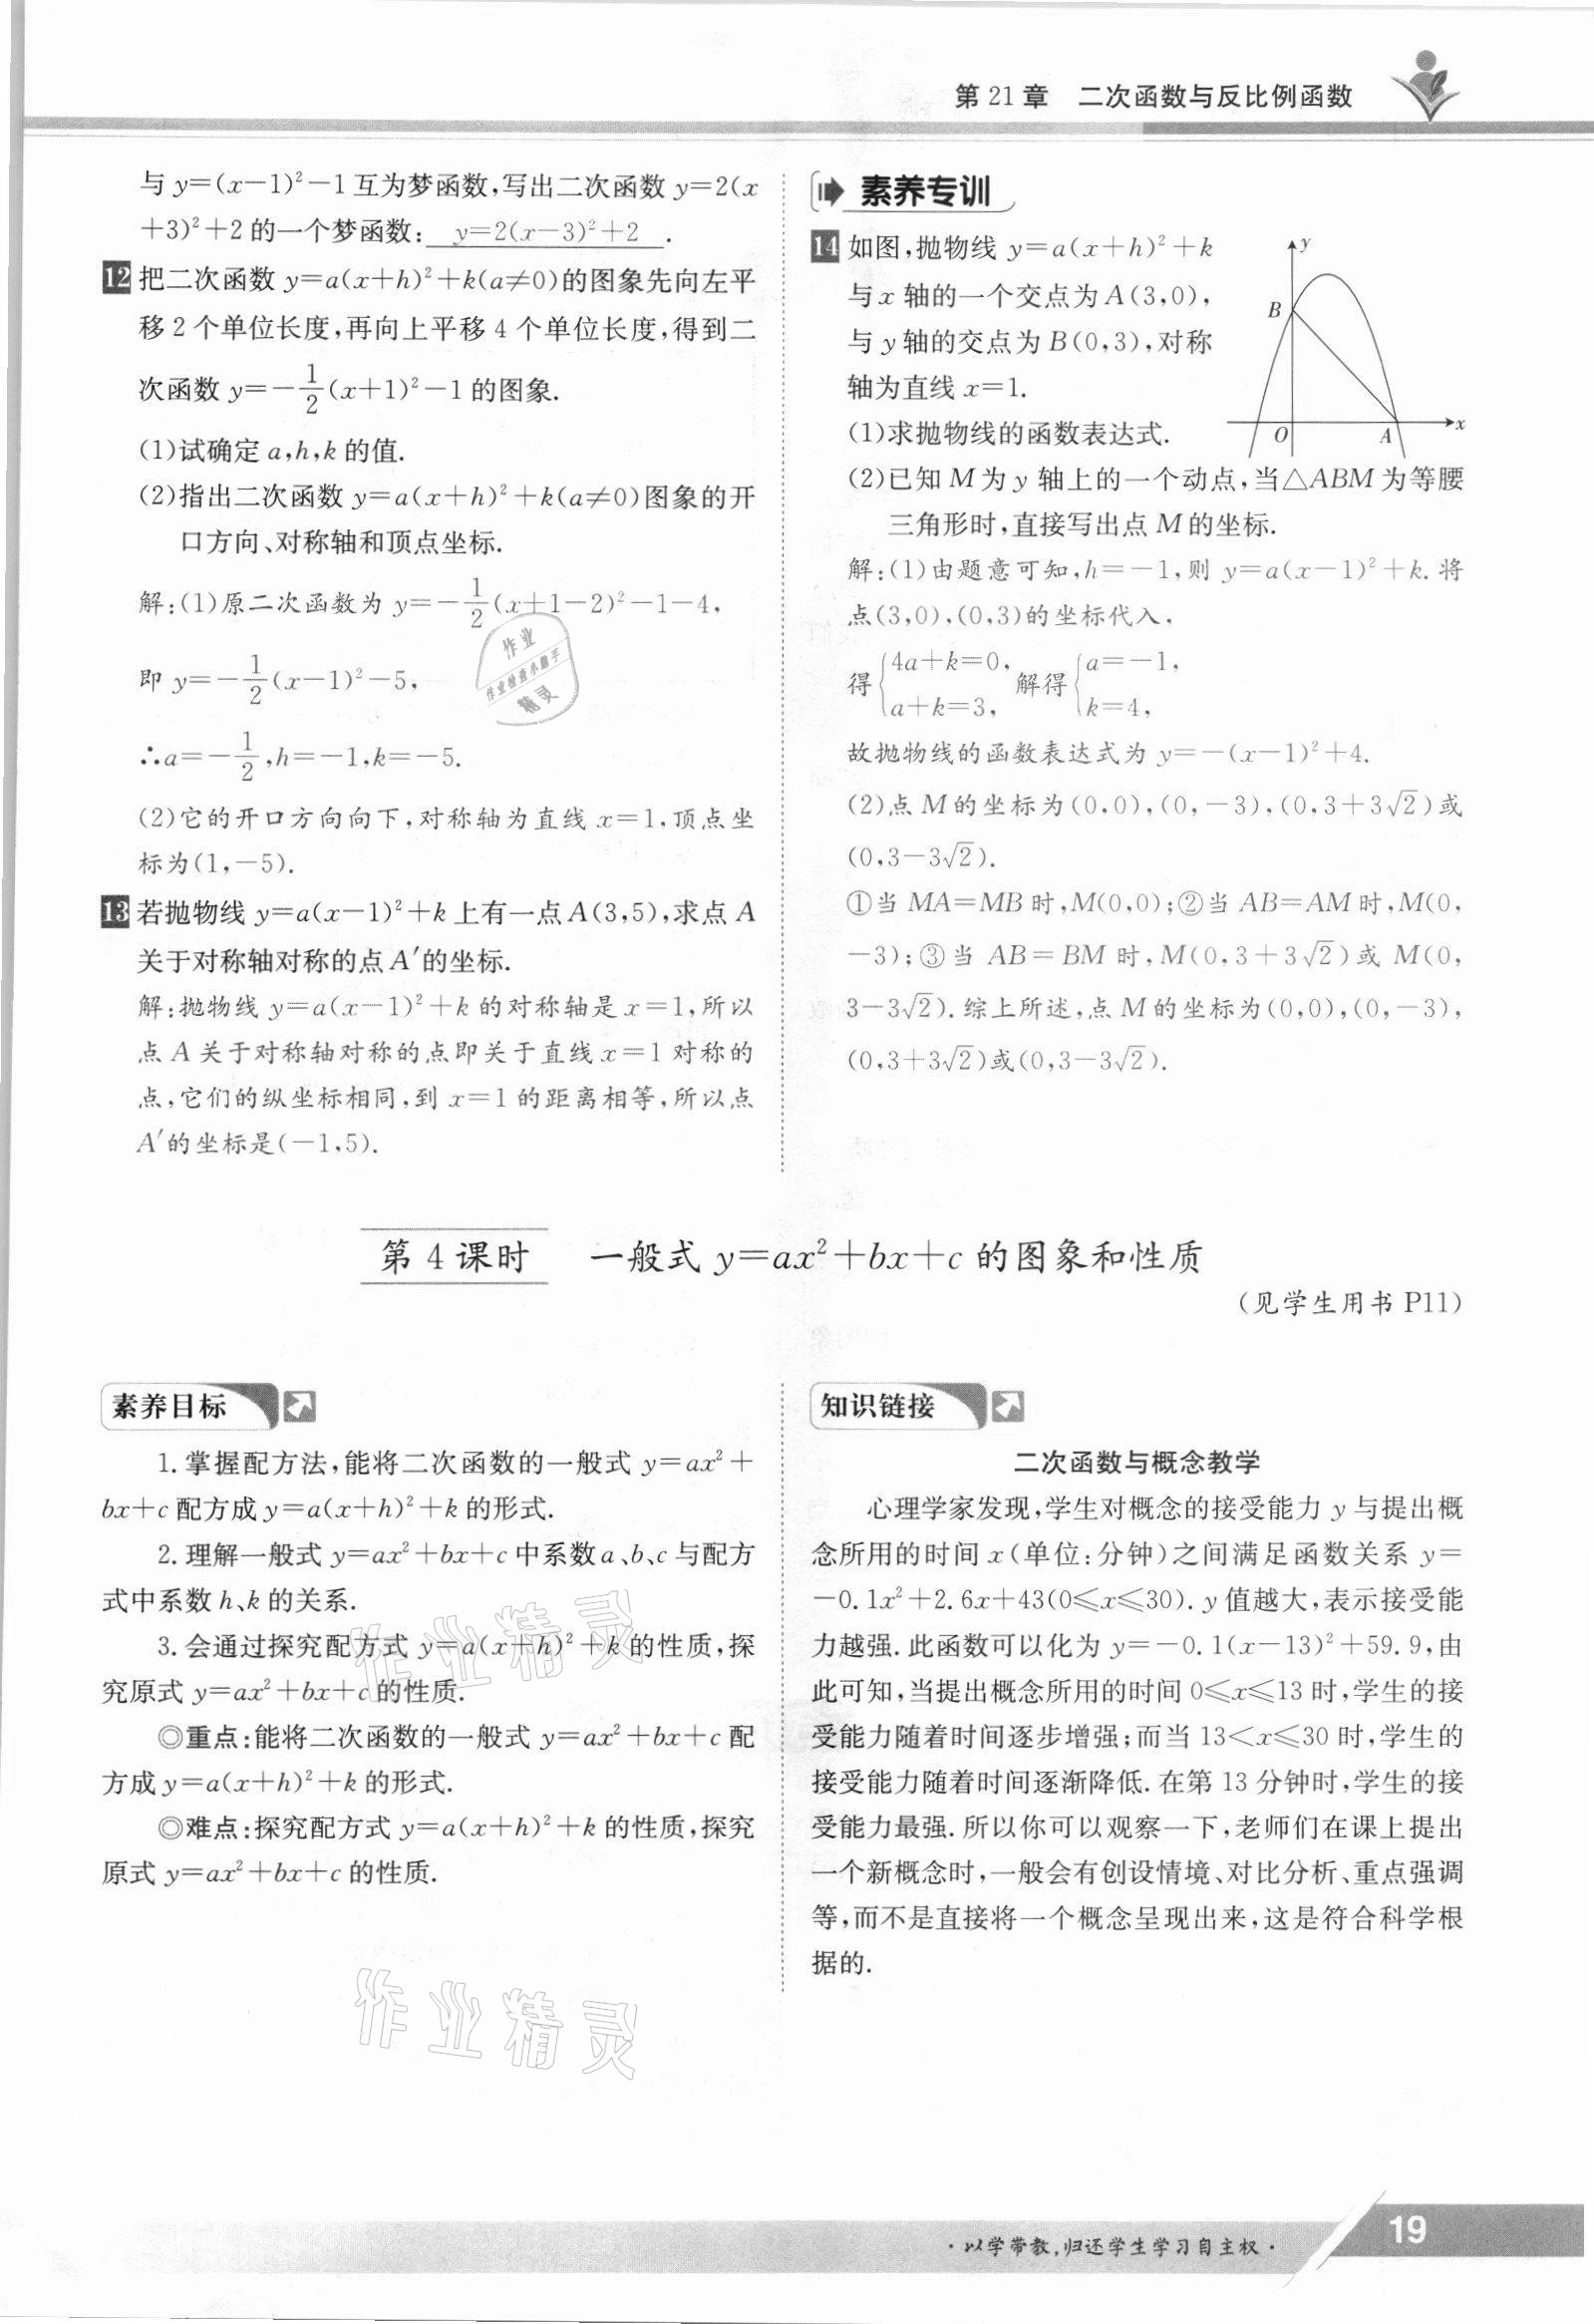 第 21 章　二次函数与反比例函数
与 y=(x-1)²-1 互为梦函数,写出二次函数 y=2(x
+3)²+2 的一个梦函数: y=2(x-3)²+2 .
12 把二次函数 y=a(x+h)²+k(a≠0)的图象先向左平
移 2 个单位长度,再向上平移 4 个单位长度,得到二
次函数 y=-1/2(x+1)²-1 的图象.
(1)试确定 a,h,k 的值.
(2)指出二次函数 y=a(x+h)²+k(a≠0)图象的开
口方向、对称轴和顶点坐标.
解:(1)原二次函数为 y=-1/2(x+1-2)²-1-4,
即 y=-1/2(x-1)²-5,
∴a=-1/2,h=-1,k=-5.
(2)它的开口方向向下,对称轴为直线 x=1,顶点坐
标为(1,-5).
13 若抛物线 y=a(x-1)²+k 上有一点 A(3,5),求点 A
关于对称轴对称的点 A′的坐标.
解:抛物线 y=a(x-1)²+k 的对称轴是 x=1,所以
点 A 关于对称轴对称的点即关于直线 x=1 对称的
点,它们的纵坐标相同,到 x=1 的距离相等,所以点
A′的坐标是(-1,5).
素养专训
14 如图,抛物线 y=a(x+h)²+k
与 x 轴的一个交点为 A(3,0),
与 y 轴的交点为 B(0,3),对称
轴为直线 x=1.
(1)求抛物线的函数表达式.
y
B
O
A
x
(2)已知 M 为 y 轴上的一个动点,当△ABM 为等腰
三角形时,直接写出点 M 的坐标.
解:(1)由题意可知,h=-1,则 y=a(x-1)²+k.将
点(3,0),(0,3)的坐标代入,
得{4a+k=0, a+k=3, 解得{a=-1, k=4,
故抛物线的函数表达式为 y=-(x-1)²+4.
(2)点 M 的坐标为(0,0),(0,-3),(0,3+3√2)或
(0,3-3√2).
①当 MA=MB 时,M(0,0);②当 AB=AM 时,M(0,
-3);③当 AB=BM 时,M(0,3+3√2)或 M(0,
3-3√2).综上所述,点 M 的坐标为(0,0),(0,-3),
(0,3+3√2)或(0,3-3√2).
第 4 课时　一般式 y=ax²+bx+c 的图象和性质
(见学生用书 P11)
素养目标
1.掌握配方法,能将二次函数的一般式 y=ax²+
bx+c 配方成 y=a(x+h)²+k 的形式.
2.理解一般式 y=ax²+bx+c 中系数 a、b、c 与配方
式中系数 h、k 的关系.
3.会通过探究配方式 y=a(x+h)²+k 的性质,探
究原式 y=ax²+bx+c 的性质.
◎重点:能将二次函数的一般式 y=ax²+bx+c 配
方成 y=a(x+h)²+k 的形式.
◎难点:探究配方式 y=a(x+h)²+k 的性质,探究
原式 y=ax²+bx+c 的性质.
知识链接
二次函数与概念教学
心理学家发现,学生对概念的接受能力 y 与提出概
念所用的时间 x(单位:分钟)之间满足函数关系 y=
-0.1x²+2.6x+43(0≤x≤30).y 值越大,表示接受能
力越强.此函数可以化为 y=-0.1(x-13)²+59.9,由
此可知,当提出概念所用的时间 0≤x≤13 时,学生的接
受能力随着时间逐步增强;而当 13<x≤30 时,学生的
接受能力随着时间逐渐降低.在第 13 分钟时,学生的接
受能力最强.所以你可以观察一下,老师们在课上提出
一个新概念时,一般会有创设情境、对比分析、重点强调
等,而不是直接将一个概念呈现出来,这是符合科学根
据的.
作业
作业检查小助手
精灵
作业精灵
作业精灵
·以学带教,归还学生学习自主权·
19